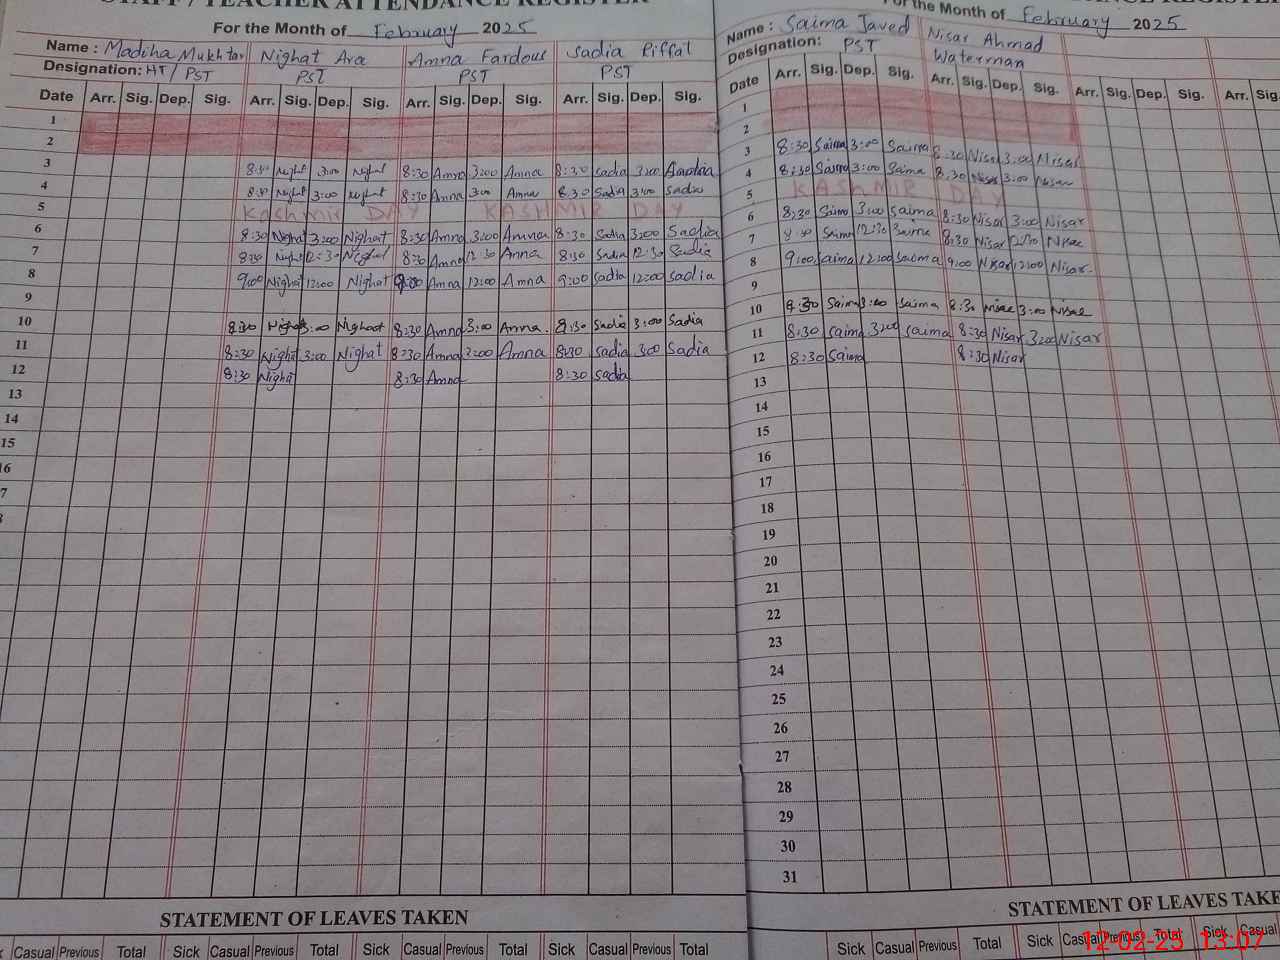 STAFF / TEACHER ATTENDANCE REGISTER
For the Month of February 2025
Name : Madiha Mukhtar Nighat Ara Amna Fardous Sadia Riffat
Designation: HT / PST PST PST PST
Date Arr. Sig. Dep. Sig. Arr. Sig. Dep. Sig. Arr. Sig. Dep. Sig. Arr. Sig. Dep. Sig.
1
2
3 8:30 Nighat 3:00 Nighat 8:30 Amna 3:00 Amna 8:30 Sadia 3:00 Sadia
4 8:30 Nighat 3:00 Nighat 8:30 Amna 3:00 Amna 8:30 Sadia 3:00 Sadia
5 Kashmir DAY KASHMIR DAY
6 8:30 Nighat 3:00 Nighat 8:30 Amna 3:00 Amna 8:30 Sadia 3:00 Sadia
7 8:30 Nighat 12:30 Nighat 8:30 Amna 12:30 Amna 8:30 Sadia 12:30 Sadia
8 9:00 Nighat 12:00 Nighat 9:00 Amna 12:00 Amna 9:00 Sadia 12:00 Sadia
9
10 8:30 Nighat 3:00 Nighat 8:30 Amna 3:00 Amna. 8:30 Sadia 3:00 Sadia
11 8:30 Nighat 3:00 Nighat 8:30 Amna 3:00 Amna 8:30 Sadia 3:00 Sadia
12 8:30 Nighat 8:30 Amna 8:30 Sadia
13
14
15
16
7
STATEMENT OF LEAVES TAKEN
Casual Previous Total Sick Casual Previous Total Sick Casual Previous Total Sick Casual Previous Total
ATTENDANCE REGISTER
For the Month of February 2025
Name : Saima Javed Nisar Ahmad
Designation: PST Waterman
Date Arr. Sig. Dep. Sig. Arr. Sig. Dep. Sig. Arr. Sig. Dep. Sig. Arr. Sig.
1
2
3 8:30 Saima 3:00 Saima 8:30 Nisar 3:00 Nisar
4 8:30 Saima 3:00 Saima 8:30 Nisar 3:00 Nisar
5 KASHMIR DAY
6 8:30 Saima 3:00 Saima 8:30 Nisar 3:00 Nisar
7 8:30 Saima 12:30 Saima 8:30 Nisar 12:30 Nisar
8 9:00 Saima 12:00 Saima 9:00 Nisar 12:00 Nisar.
9
10 8:30 Saima 3:00 Saima 8:30 Nisar 3:00 Nisar
11 8:30 Saima 3:00 Saima 8:30 Nisar 3:00 Nisar
12 8:30 Saima 8:30 Nisar
13
14
15
16
17
18
19
20
21
22
23
24
25
26
27
28
29
30
31
STATEMENT OF LEAVES TAKE
Sick Casual Previous Total Sick Casual Previous Total Sick Casual
12-02-25 13:07